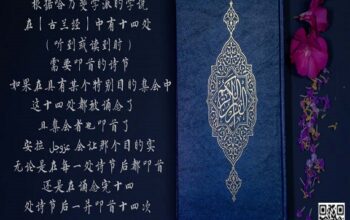 根据哈乃斐学派的学说
在【古兰经】中有十四处
（听到或读到时）
需要叩首的诗节
如果在具有某个特别目的集会中
这十四处都被诵念了
且集会者也叩首了
安拉 عزوجل 会让那个目的实
无论是在每一处诗节后都叩首
还是在诵念完十四
处诗节后一并叩首十四次